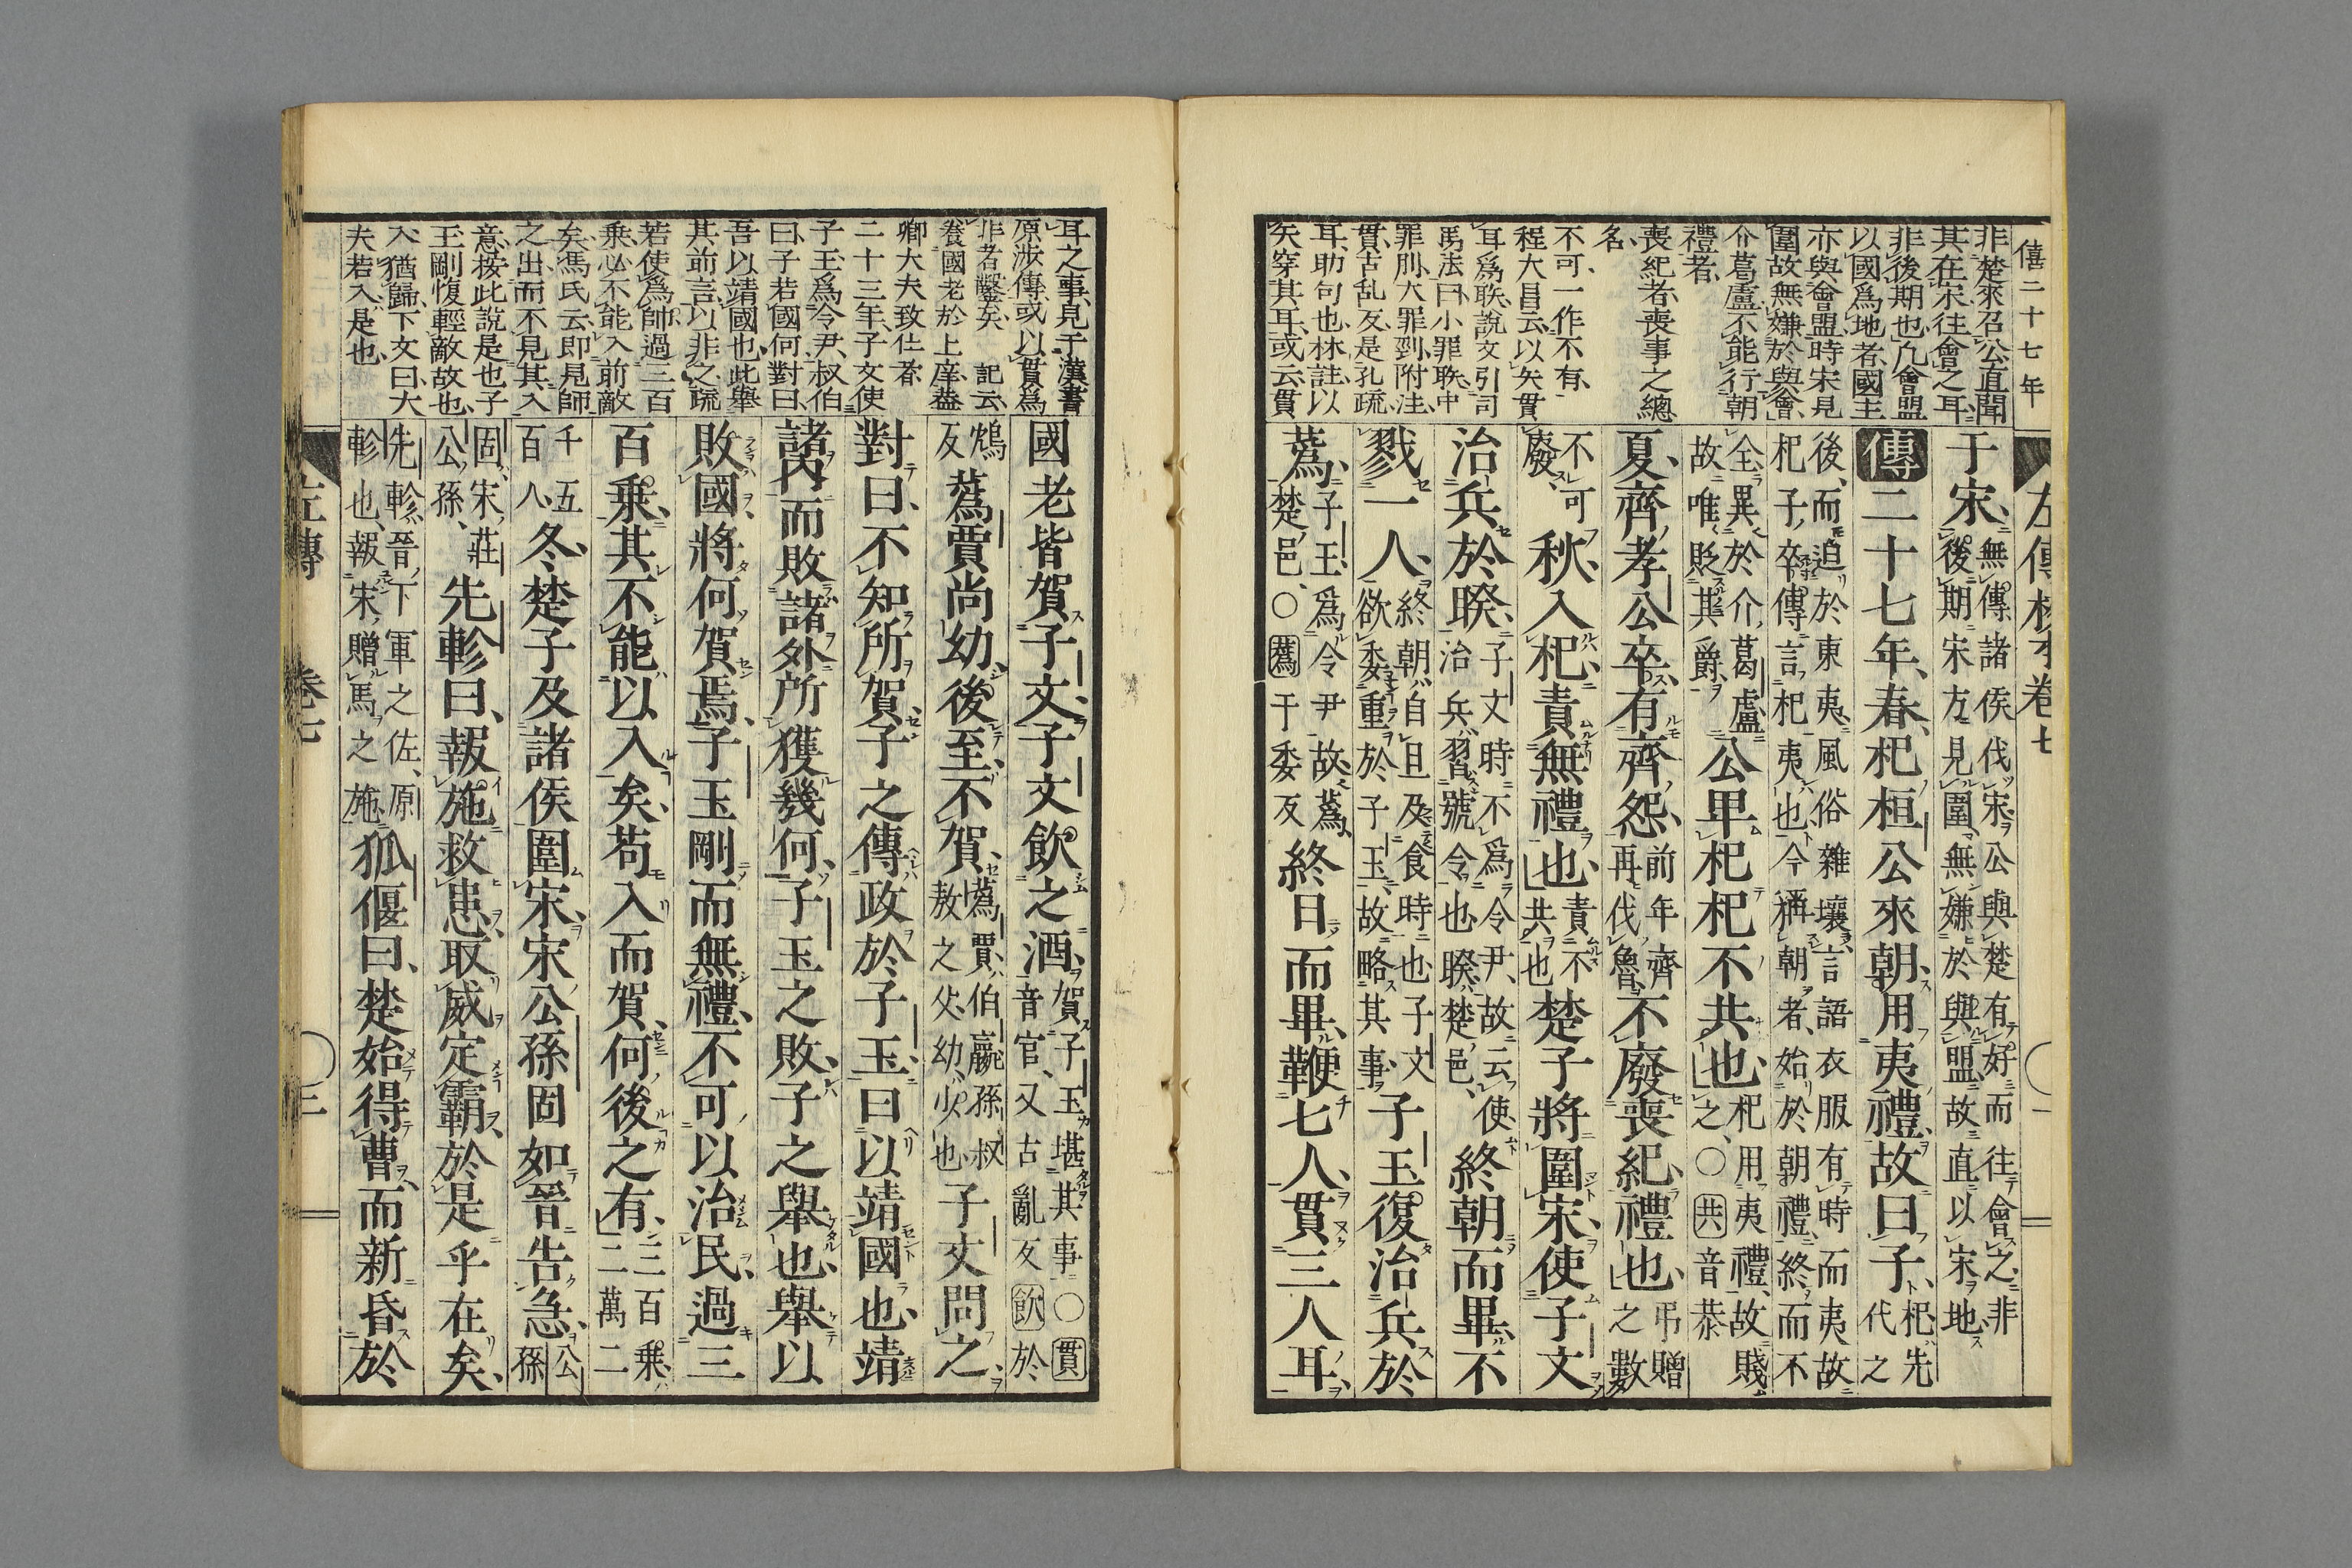 僖二十七年
非楚來召公直聞
其在宋往會之耳
非後期也凡會盟
以國爲地者國主
亦與會盟時宋見
圍故無嫌於與會
介葛盧不能行朝
禮者
喪紀者喪事之總
名
不可一作不有
程大昌云以矢貫
耳爲聅說文引司
馬法曰小罪聅中
罪刖大罪剄附注
貫古乱反是孔疏
耳助句也林註以
矢穿其耳或云貫
左傳校本卷七 一
于宋無傳諸侯伐宋公與楚有好而往會之非後期宋方見圍無嫌於與盟故直以宋地
傳二十七年春杞桓公來朝用夷禮故曰子杞先代之
後而迫於東夷風俗雜壞言語衣服有時而夷故杞子卒傳言杞夷也今稱朝者始於朝禮終而不
全異於介葛盧故唯貶其爵公卑杞杞不共也杞用夷禮故賤之○共音恭
夏齊孝公卒有齊怨前年齊再伐魯不廢喪紀禮也弔贈之數
不可廢秋入杞責無禮也責不共也楚子將圍宋使子文
治兵於睽子文時不爲令尹故云使治兵習號令也睽楚邑終朝而畢不
戮一人終朝自旦及食時也子文欲委重於子玉故略其事子玉復治兵於
蒍子玉爲令尹故蒍楚邑○蒍于委反終日而畢鞭七人貫三人耳
耳之事見于漢書
原涉傳或以貫爲
非者鑿矣 記云
養國老於上庠葢
卿大夫致仕者
二十三年子文使
子玉爲令尹叔伯
曰子若國何對曰
吾以靖國也此舉
其前言以非之疏
若使爲帥過三百
乘必不能入前敵
矣馮氏云即見師
之出而不見其入
意按此說是也子
玉剛愎輕敵故也
入猶歸下文曰大
夫若入是也
國老皆賀子文子文飲之酒賀子玉堪其事○貫音官又古亂反飲於
鴆反蒍賈尚幼後至不賀蒍賈伯嬴孫叔敖之父幼少也子文問之
對曰不知所賀子之傳政於子玉曰以靖國也靖
諸內而敗諸外所獲幾何子玉之敗子之舉也舉以
敗國將何賀焉子玉剛而無禮不可以治民過三
百乘其不能以入矣苟入而賀何後之有三百乘二萬二
千五百人冬楚子及諸侯圍宋宋公孫固如晉告急公孫
固宋莊公孫先軫曰報施救患取威定霸於是乎在矣
先軫晉下軍之佐原軫也報宋贈馬之施狐偃曰楚始得曹而新昏於
左傳 卷七 三